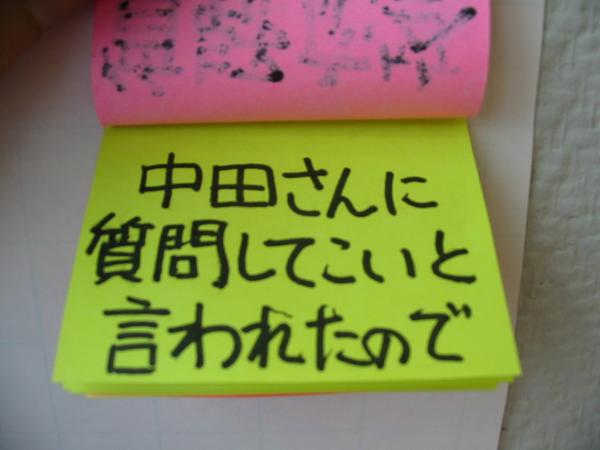 中田さんに
質問してこいと
言われたので